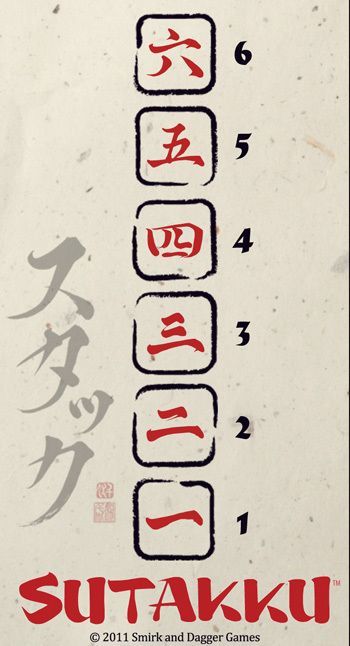 六 6
五 5
四 4
三 3
二 2
一 1
スタック
SUTAKKU™
© 2011 Smirk and Dagger Games